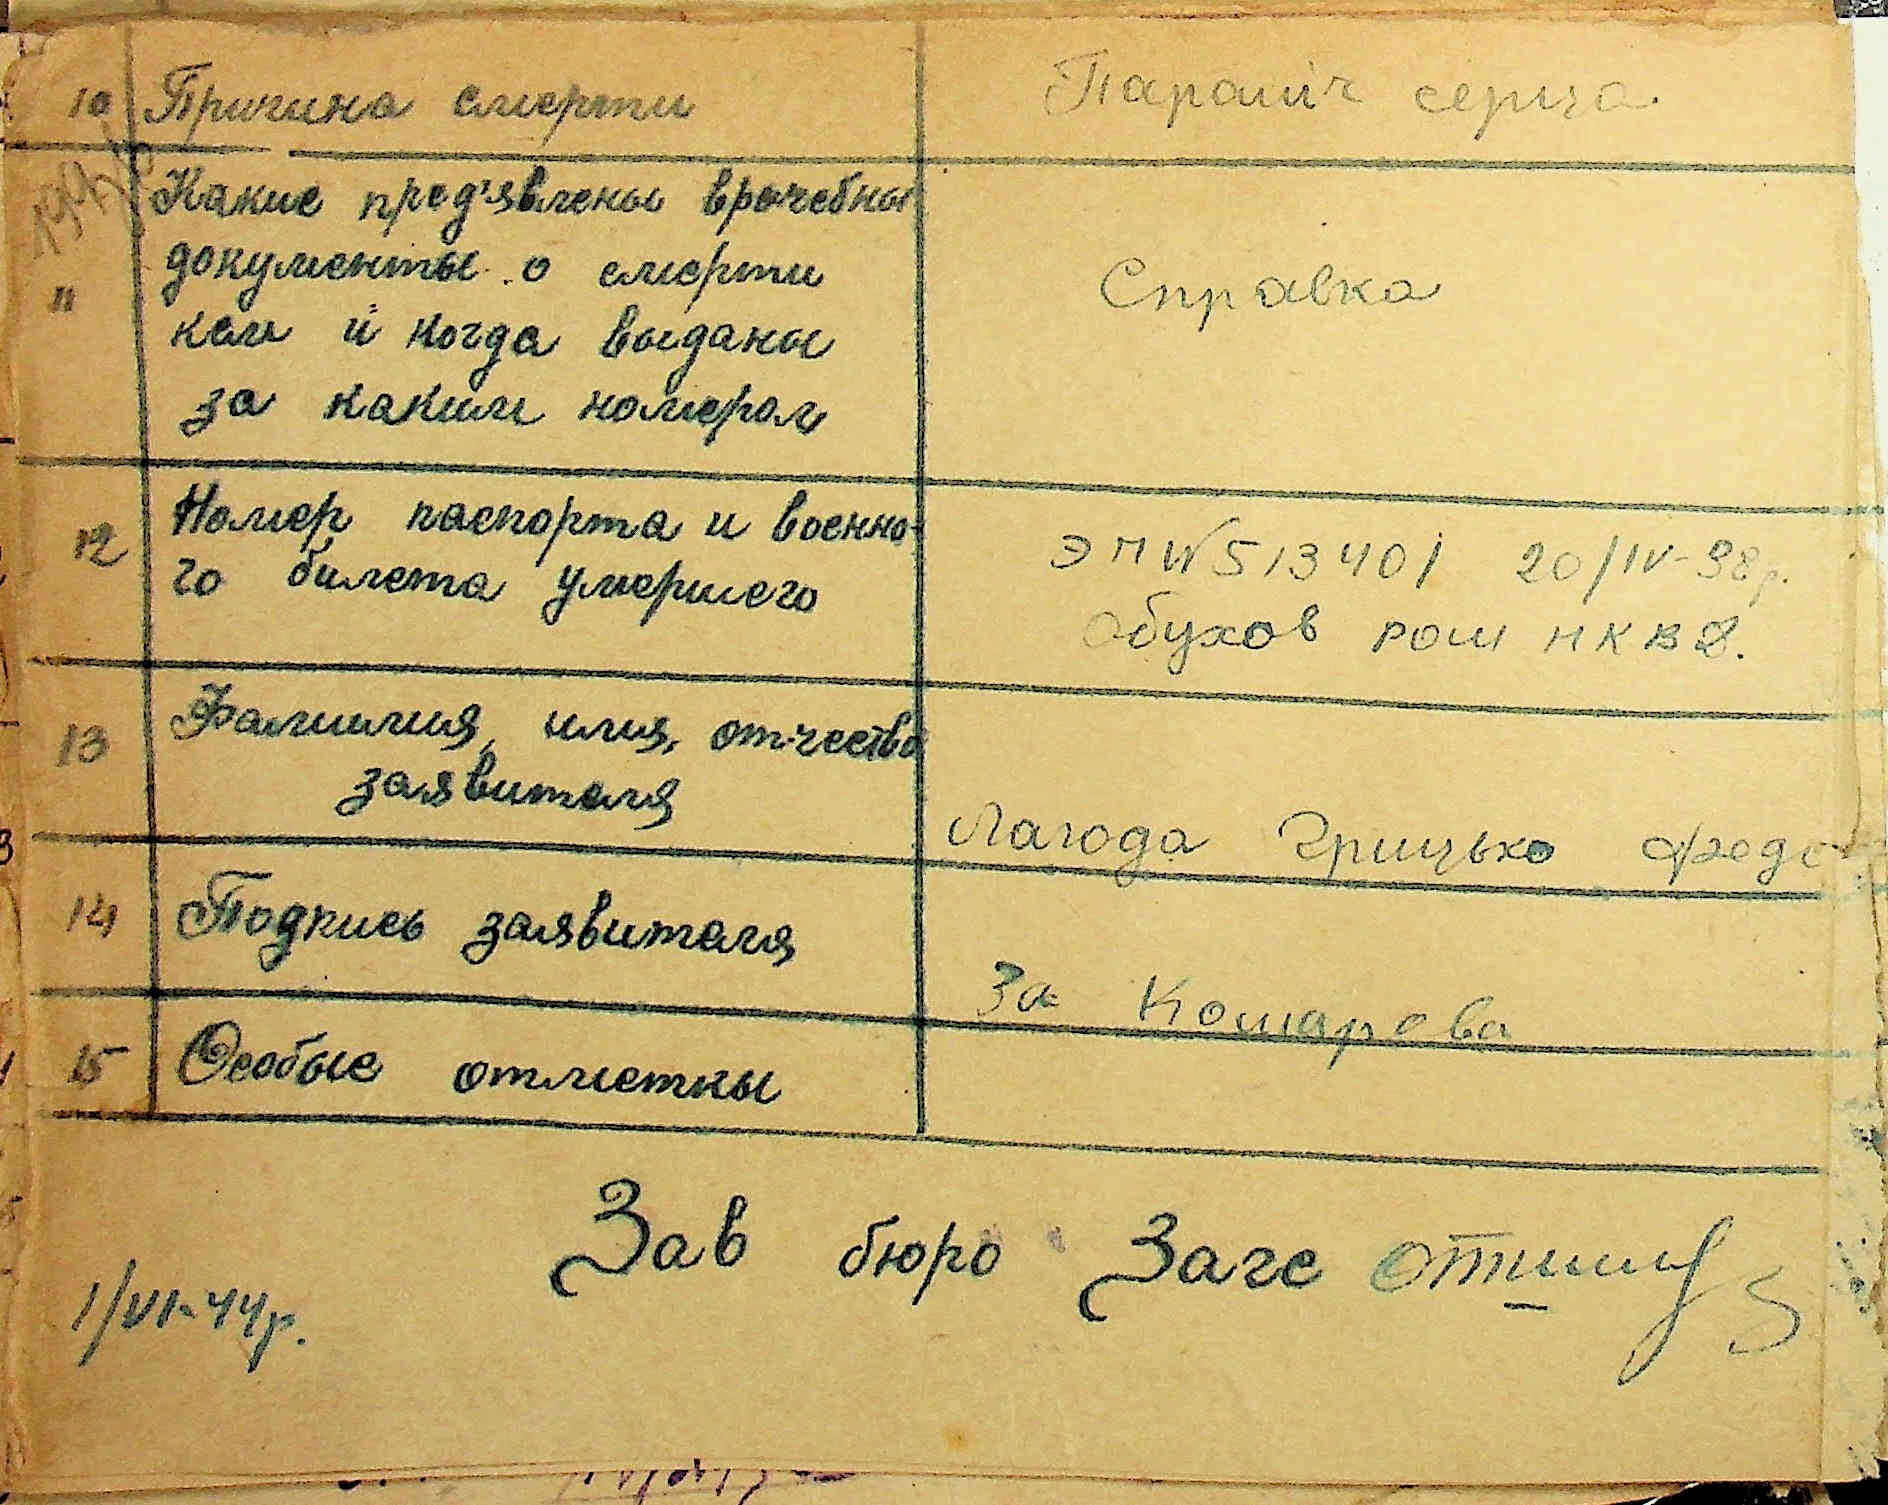 10 Причина смерти Параліч серца
Какие пред'явлены врачебны
документы о смерти
11 Справка
кем и когда выданы
за каким номером
Номер паспорта и военно-
12 ЭП № 513401 20/IV-38р.
го билета умершего
Обухов РОМ НКВД.
13 Фамилия, имя, отчество
заявителя
Лагода Грицько Федо
14 Подпись заявителя
За Комарова
15 Особые отметкы
Зав бюро Загс
1/VI-44р.